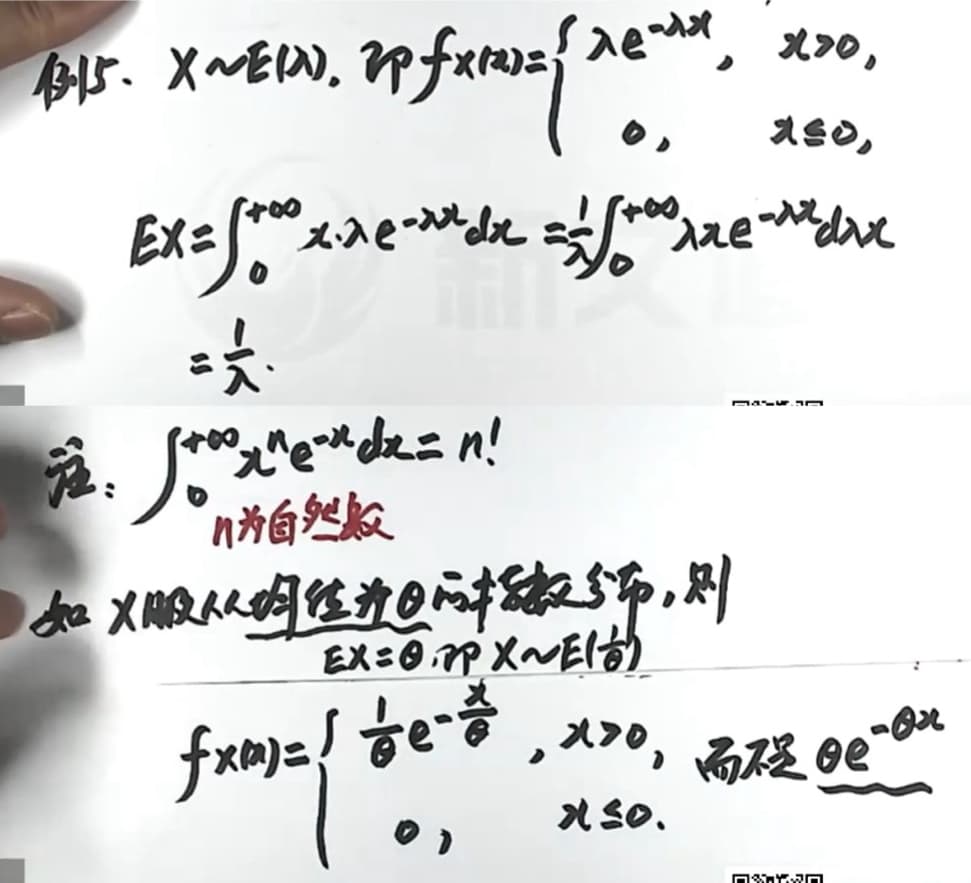 例15. X~E(λ), 即 fX(x)={ λe^{-λx}, x>0,
0, x≤0,
EX=∫_0^{+∞} x·λe^{-λx}dx = 1/λ ∫_0^{+∞} λxe^{-λx}dλx
= 1/λ.
注: ∫_0^{+∞} x^n e^{-x}dx = n!
n为自然数
如X服从均值为θ的指数分布,则
EX=θ,即X~E(1/θ)
fX(x)={ 1/θ e^{-x/θ}, x>0, 而不是 θe^{-θx}
0, x≤0.